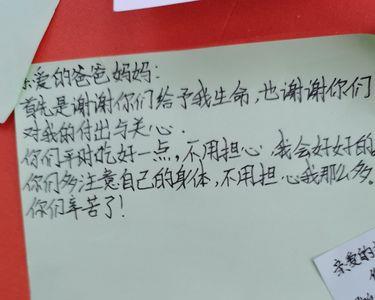 亲爱的爸爸妈妈：
首先是谢谢你们给予我生命，也谢谢你们
对我的付出与关心．
你们平时吃好一点，不用担心，我会好好的
你们多注意自己的身体，不用担心我那么多。
你们辛苦了！
亲爱的